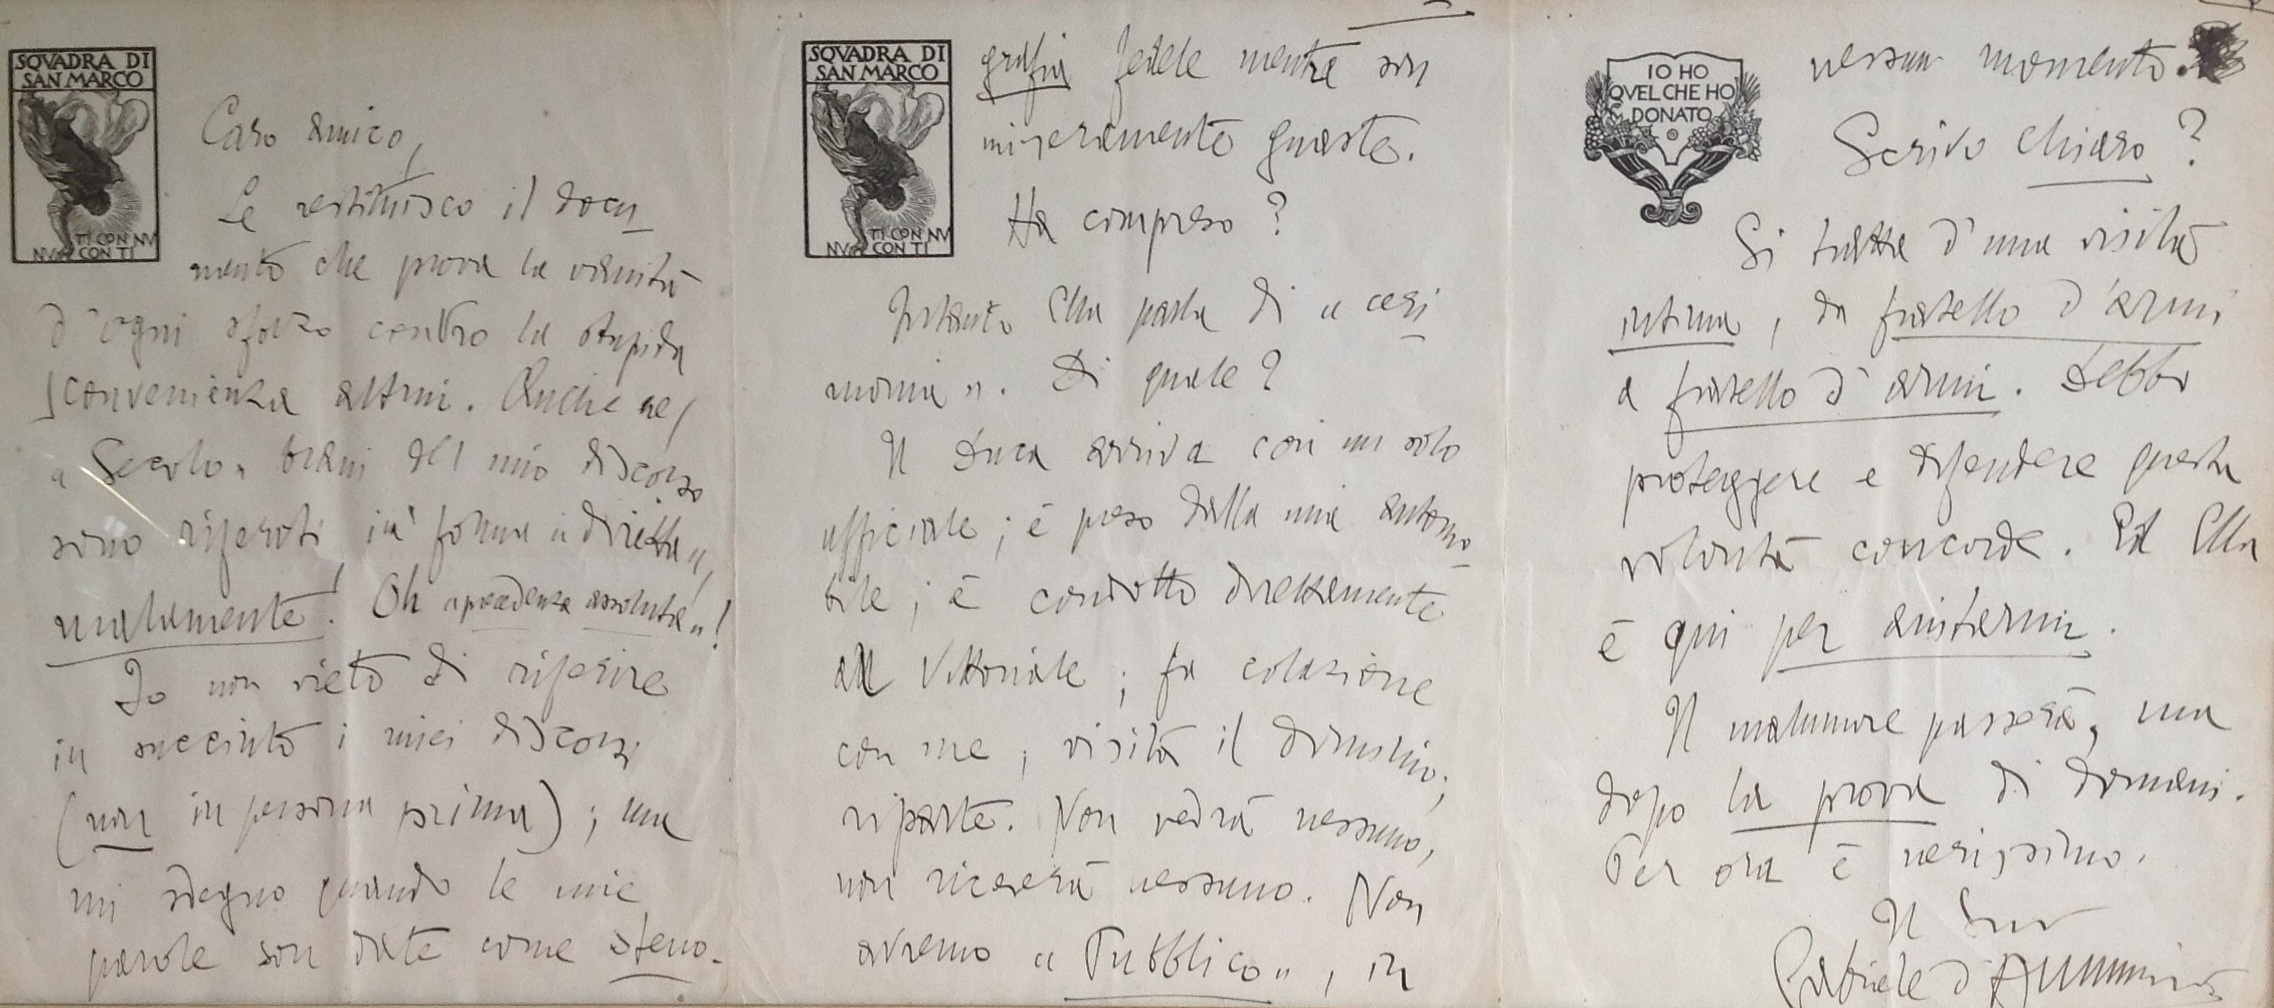 SQVADRA DI
SAN MARCO
TI CON NV
NV CON TI
Caro amico,
Le restituisco il docu
mento che prova la vanità
d'ogni sforzo contro la stupida
sconvenienza altrui. Anche nel
"Secolo" brani del mio discorso
sono riferiti, in forma "diretta",
malamente! Oh "prudenza assoluta"!
Io non vieto di riferire
in succinto i miei discorsi
(non in persona prima); ma
mi sdegno quando le mie
parole son date come steno-
SQVADRA DI
SAN MARCO
TI CON NV
NV CON TI
grafia fedele mentre son
miseramente guaste.
Ha compreso?
Intanto Ella parla di "ceri
monia". Di quale?
Il Duca arriva con un solo
ufficiale; è preso dalla mia automo
bile; è condotto direttamente
al Vittoriale; fa colazione
con me; visita il dominio;
riparte. Non vedrà nessuno,
non riceverà nessuno. Non
avremo "Pubblico", in
IO HO
QVEL CHE HO
DONATO
nessun momento.
Scrivo chiaro?
Si tratta d'una visita
intima, da fratello d'armi
a fratello d'armi. Debbo
proteggere e difendere questa
volontà concorde. Ed Ella
è qui per aiutarmi.
Il malumore passerà, ma
dopo la prova di domani.
Per ora è nerissimo.
Il Suo
Gabriele d'Annunzio